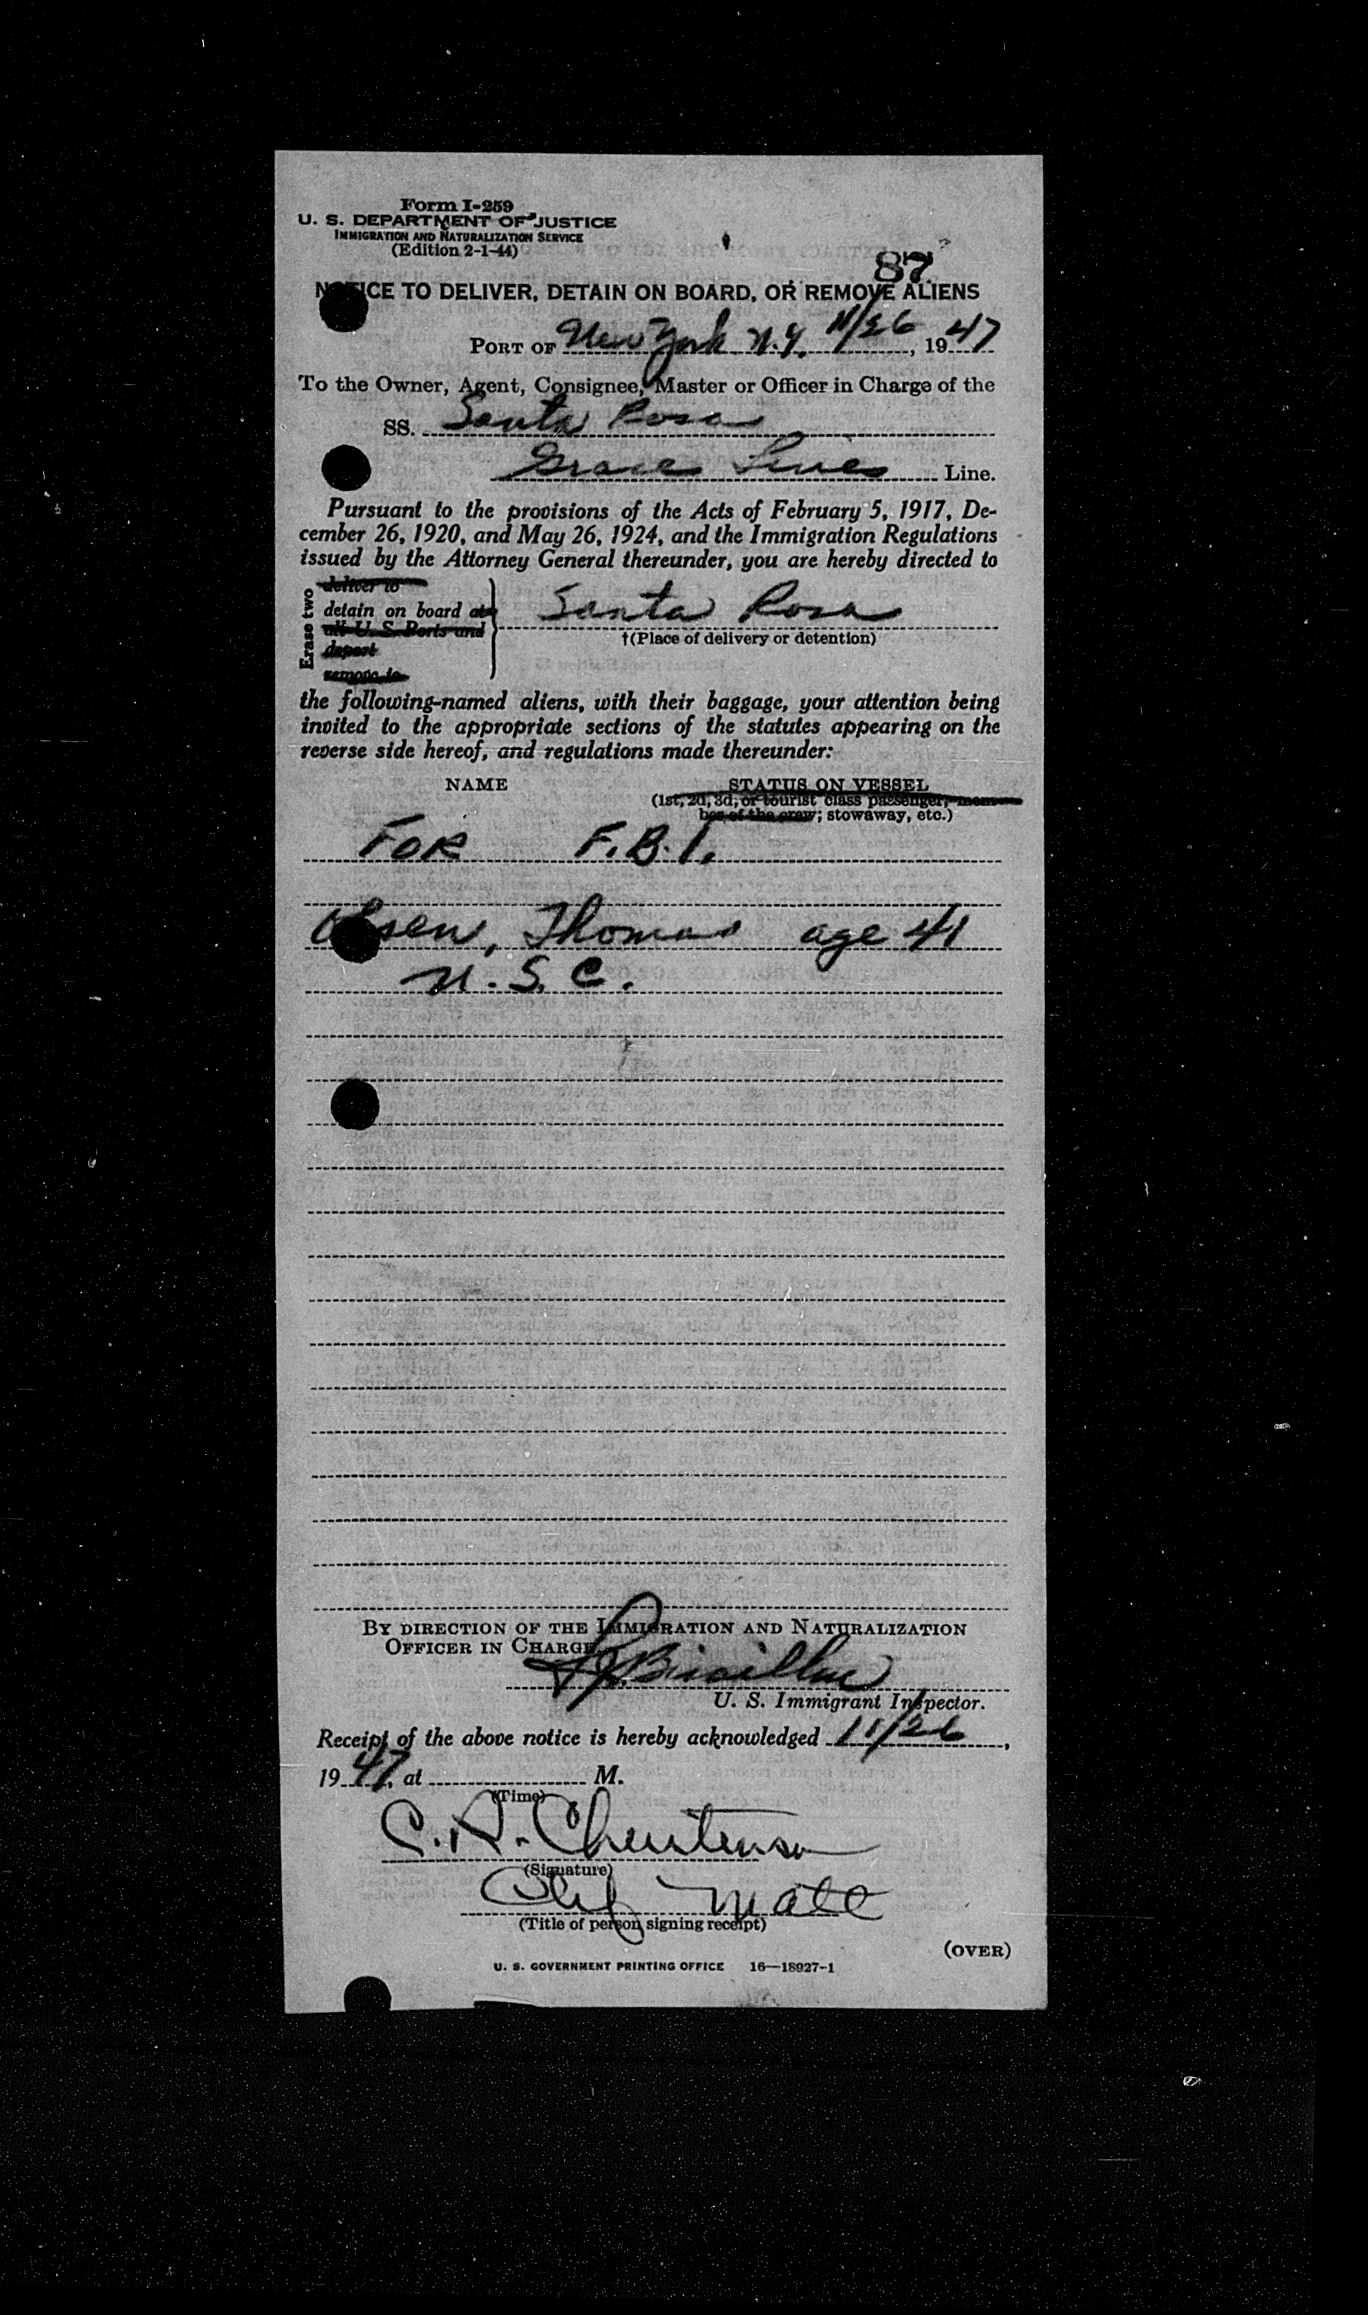 Form I-259
U. S. DEPARTMENT OF JUSTICE
IMMIGRATION AND NATURALIZATION SERVICE
(Edition 2-1-44)
87
NOTICE TO DELIVER, DETAIN ON BOARD, OR REMOVE ALIENS
PORT OF New York N.Y. 11/26, 1947
To the Owner, Agent, Consignee, Master or Officer in Charge of the
SS. Santa Rosa
Grace Lines Line.
Pursuant to the provisions of the Acts of February 5, 1917, De-
cember 26, 1920, and May 26, 1924, and the Immigration Regulations
issued by the Attorney General thereunder, you are hereby directed to
Erase two
deliver to
detain on board at
all U. S. Ports and
depart
remove to
Santa Rosa
†(Place of delivery or detention)
the following-named aliens, with their baggage, your attention being
invited to the appropriate sections of the statutes appearing on the
reverse side hereof, and regulations made thereunder:
NAME STATUS ON VESSEL
(1st, 2d, 3d, or tourist class passenger, mem-
ber of the crew; stowaway, etc.)
FOR F.B.I.
Olsen, Thomas age 41
U.S.C.
BY DIRECTION OF THE IMMIGRATION AND NATURALIZATION
OFFICER IN CHARGE
U. S. Immigrant Inspector.
Receipt of the above notice is hereby acknowledged 11/26,
1947, at M.
(Time)
C. A. Christensen
(Signature)
Chf Mate
(Title of person signing receipt)
(OVER)
U. S. GOVERNMENT PRINTING OFFICE 16—18927-1